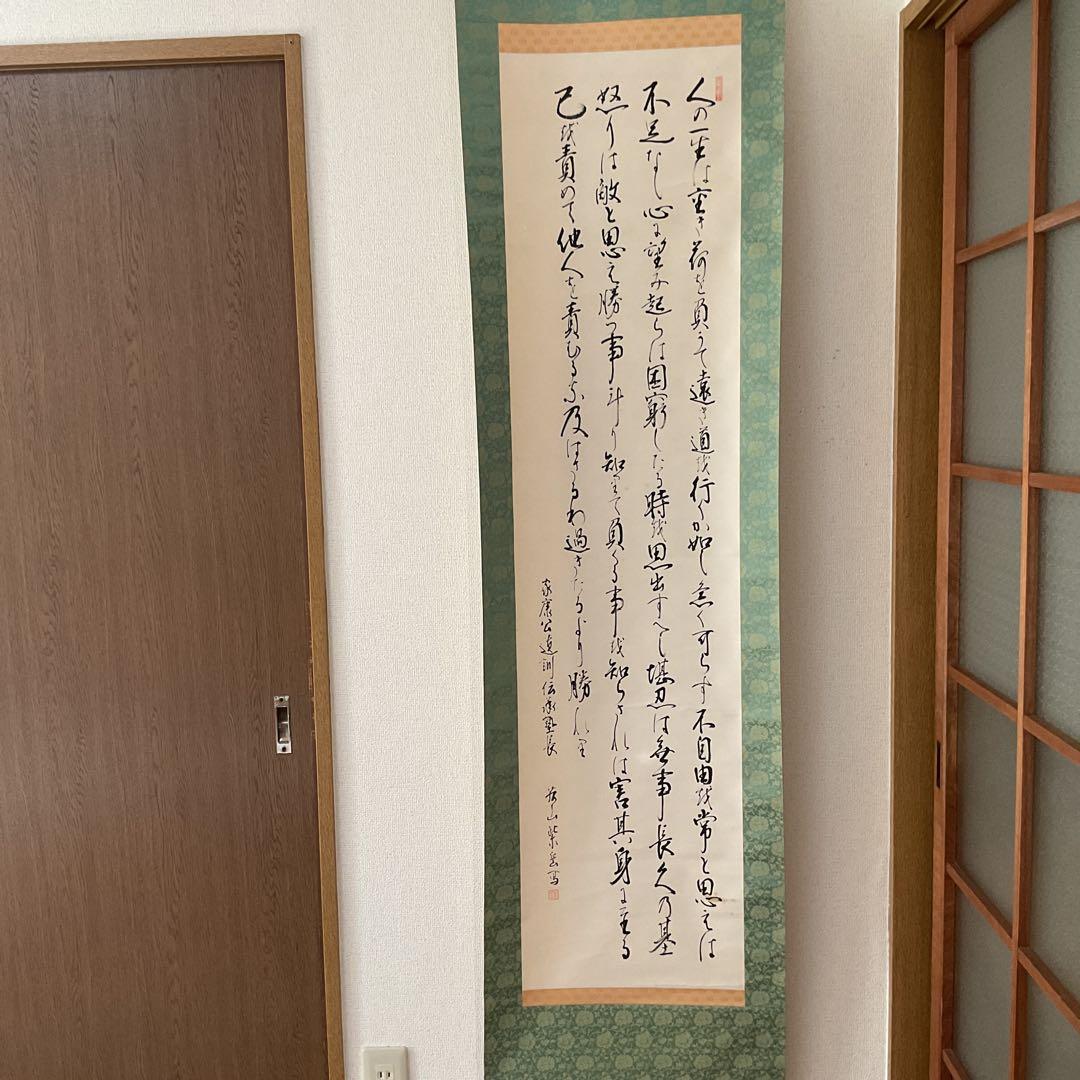 人の一生は重き荷を負うて遠き道を行くか如し急く可らす不自由を常と思えは
不足なし心に望み起らは困窮したる時を思出すへし堪忍は無事長久乃基
怒りは敵と思え勝つ事計り知りて負くる事を知らされは害其身に至る
己を責めて他人を責むるな及はさるわ過きたるより勝れり
家康公遺訓伝承塾長 山紫岳写